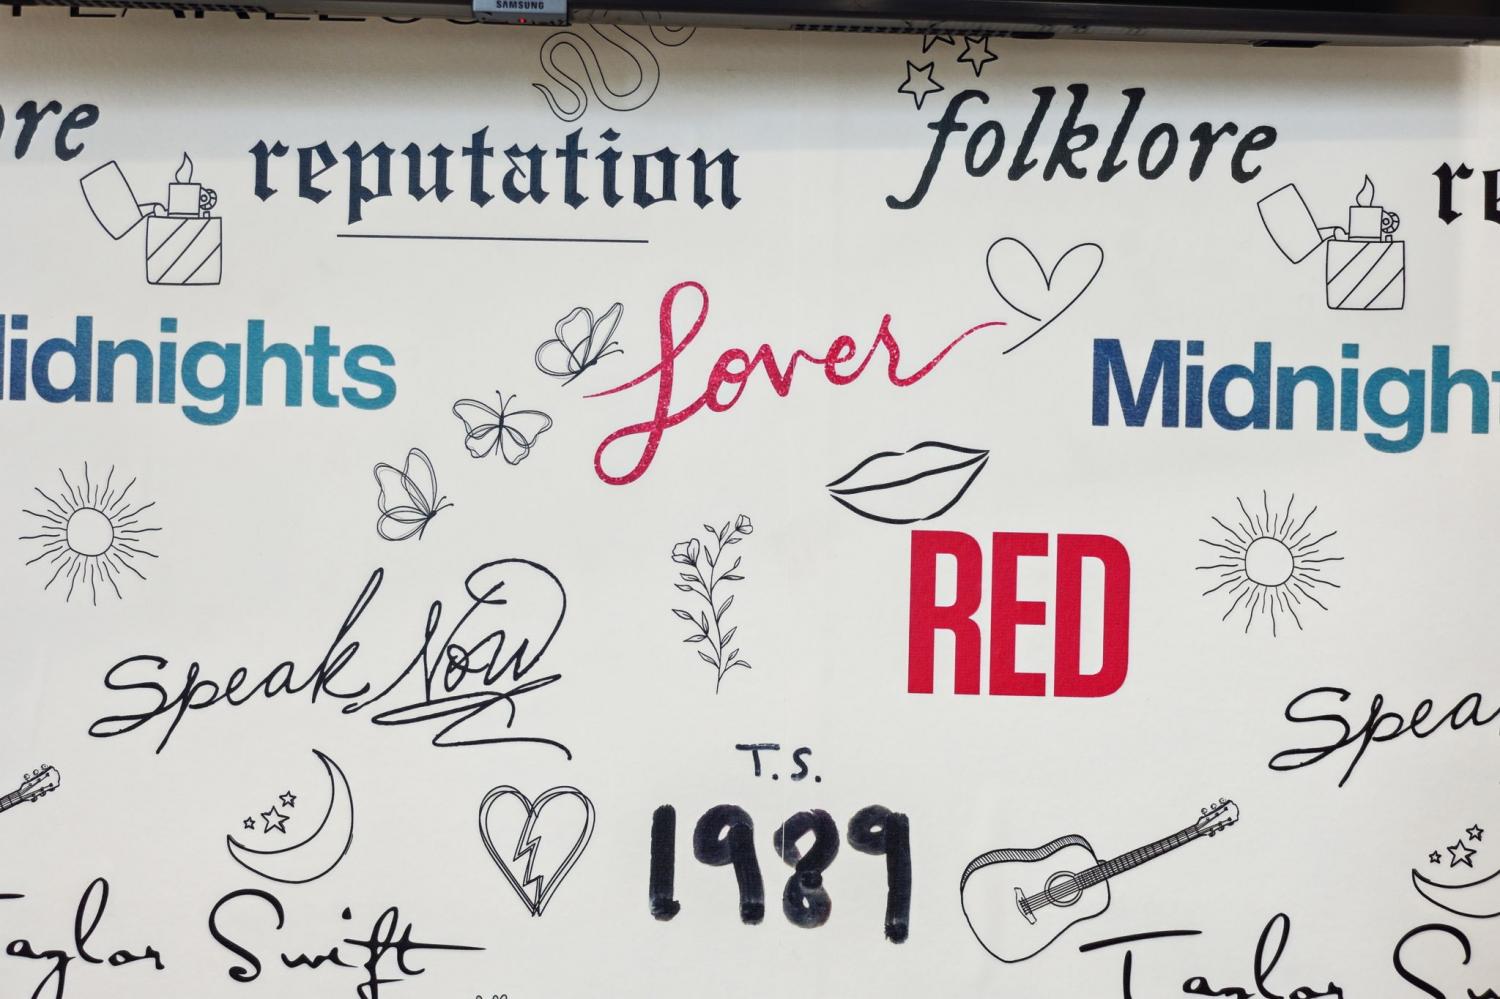 FEARLESS
SAMSUNG
ore
reputation
folklore
re
Midnights
Lover
Midnight
RED
Speak Now
Spea
T.S.
1989
Taylor Swift
Taylor Sw